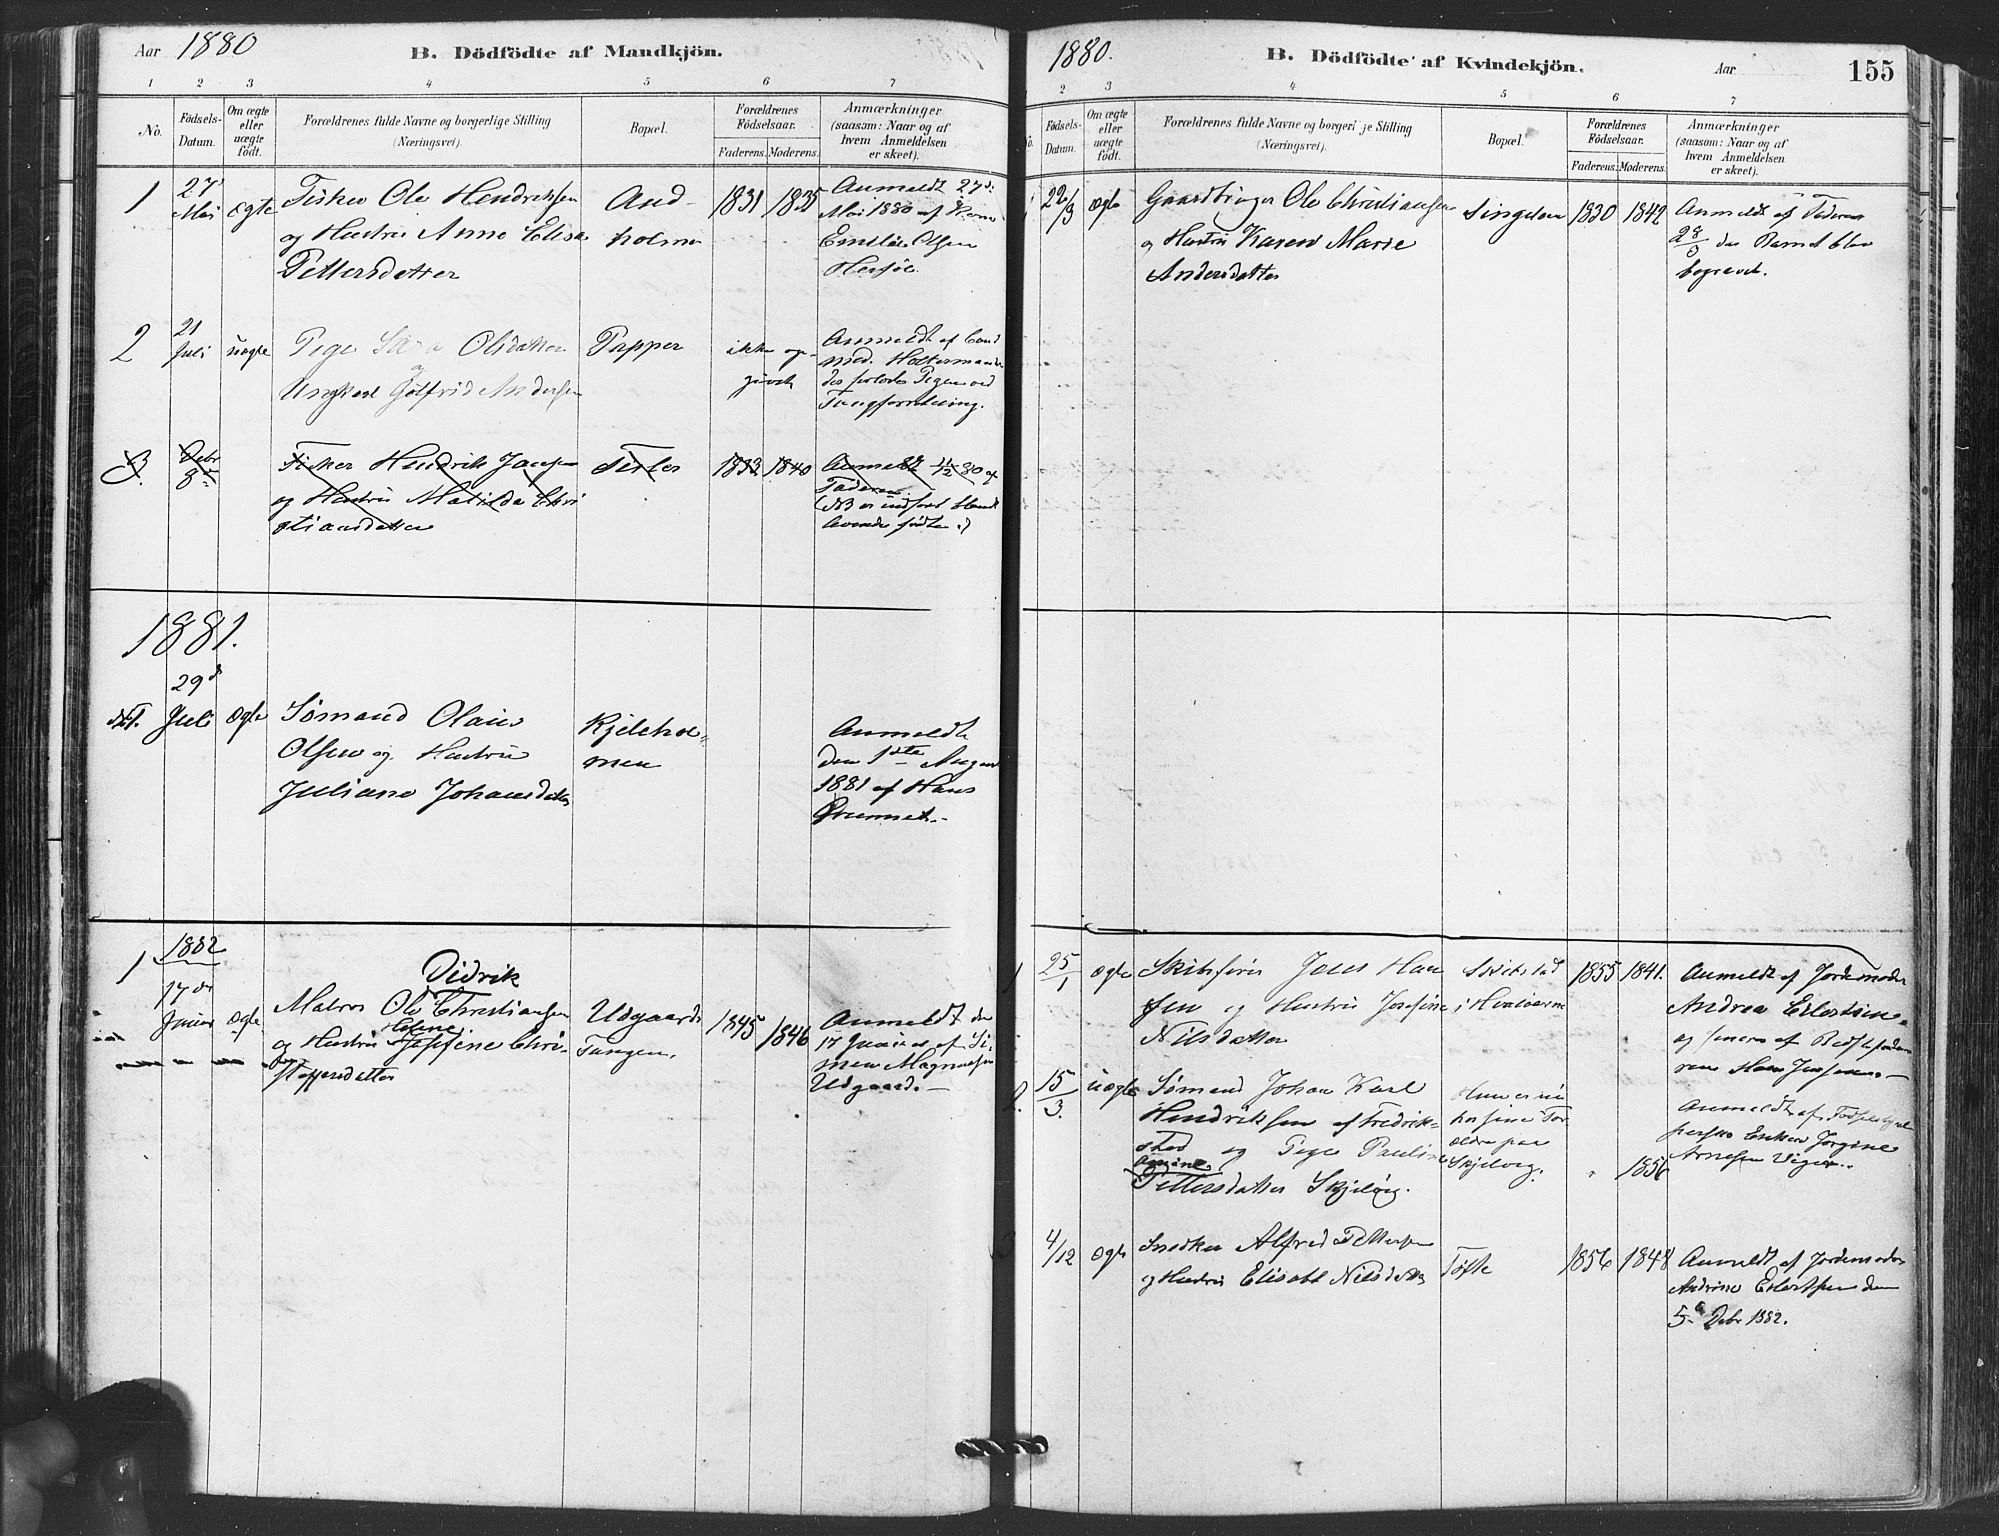 Aar 1880 B. Dödfödte af Mandkjön.
1 2 3 4 5 6 7
No. Födsels-Datum. Om ægte eller uægte födt. Forældrenes fulde Navne og borgerlige Stilling (Næringsvei). Bopæl. Forældrenes Födselsaar. Faderens. Moderens. Anmærkninger (saasom: Naar og af hvem Anmeldelsen er skeet).
1 27de Mai Ægte Fisker Ole Hendriksen
og Hustru Anne Elisa
Pettersdatter
And-
holmen
1831 1835
Anmeldt 27de
Mai 1880 af
Emilie Olsen
Herføl.
2 21 Juli uægte Pige Olsdatter
Ungkarl Gotfrid Andersen
Papper
ikke op-
givet
Anmeldt af Cand
med. Holtermann
der forløste Pigen ved
Tangforretning.
3. Debr 8de
Fisker Hendrik Jansen
og Hustru Matilda Chri
stiansdatter
1833 1840
Anmeldt 11/12 80 af
Faderen
(NB er indført blandt
levende fødte.)
1881.
№1. 29de Juli Ægte Sømand Olaus
Olsen og Hustru
Juliane Johansdatter
Kjelehol-
men
Anmeldt
den 1ste August
1881 af Hans
1882
1 17de Januar Ægte
Didrik
Matros Ole Christiansen
Helene
og Hustru Josefine Chri-
stoffersdatter
Udgaards
Tangen.
1845 1846
Anmeldt den
17 Januar af Si-
men Magnussen
Udgaard.
1880. B. Dödfödte af Kvindekjön. Aar 155
2 3 4 5 6 7
Födsels-Datum. Om ægte eller uægte födt. Forældrenes fulde Navne og borgerlige Stilling (Næringsvei). Bopæl. Forældrenes Födselsaar. Faderens. Moderens. Anmærkninger (saasom: Naar og af hvem Anmeldelsen er skeet).
1 22/3 Ægte Gaardbruger Ole Christiansen
og Hustru Karen Marie
Andersdatter
Singeløen
1830 1842
Anmeldt af Faderen
28/3 da Barnet blev
begravet.
1 25/1 Ægte Skibsfører Jens Han
sen og Hustru Josefine
Nilsdatter
Skibstad
i Hvaløerne
1855 1841.
Anmeldt af Jordemoder
Andrea Eilertsen
og senere af Bedstefade-
ren Hans Jensen
2. 15/3. uægte Sømand Johan Karl
Hendriksen af Fredrik-
stad og Pige Pauline
Amine
Pettersdatter Skjelvig.
Hun er nu
hos sine For
ældre paa
Skjelvig.
" 1856
Anmeldt af Fødselshjæl
perske Enken Jorgine
Arnesen Viger.
3 4/12 Ægte Snedker Alfred Pettersen
og Hustru Elisabt Nilsdatter
Tofte
1856 1848
Anmeldt af Jordemoder
Andrine Eilertsen den
5te Debr 1882.